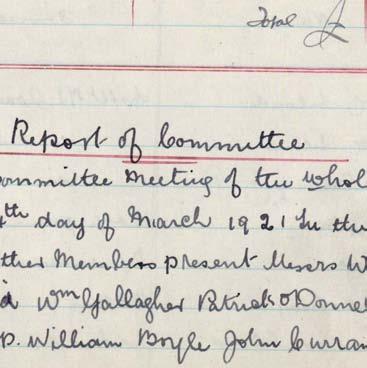 Total £
Report of Committee
ommittee Meeting of the whol
4th day of March 1921 In the
ther Members present Messrs W
d Wm Gallagher Patrick O'Donne
P. William Boyle John Curran